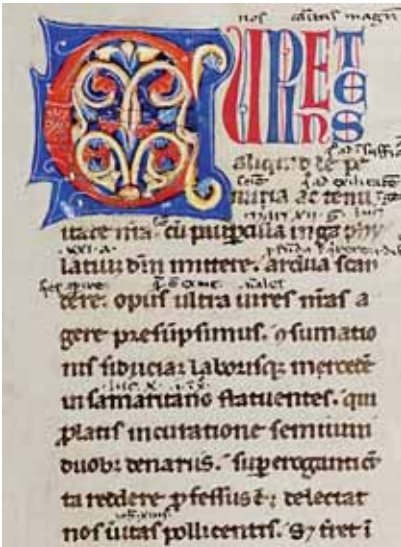 nos caritas magna
CUPIET
ENS
aliquid de pe
nuria ac tenui
tate nr̄a. cū paup̱cula in gazophy
XXI. a.
latiū dn̄i mittere. ardua scan
dere. opus ultra uires nr̄as a
gere presūpsimus. ꝯsumatio
nis fiduciā laborisq; mercedē
luc. X.
in samaritano statuentes. qui
ꝓlatis in curatione semiuiui
duob; denariis. suꝑeroganti cūc
ta reddere ꝓfessus ē; delectat
nos ūitas pollicentis. Sꝫ t̄ret ī